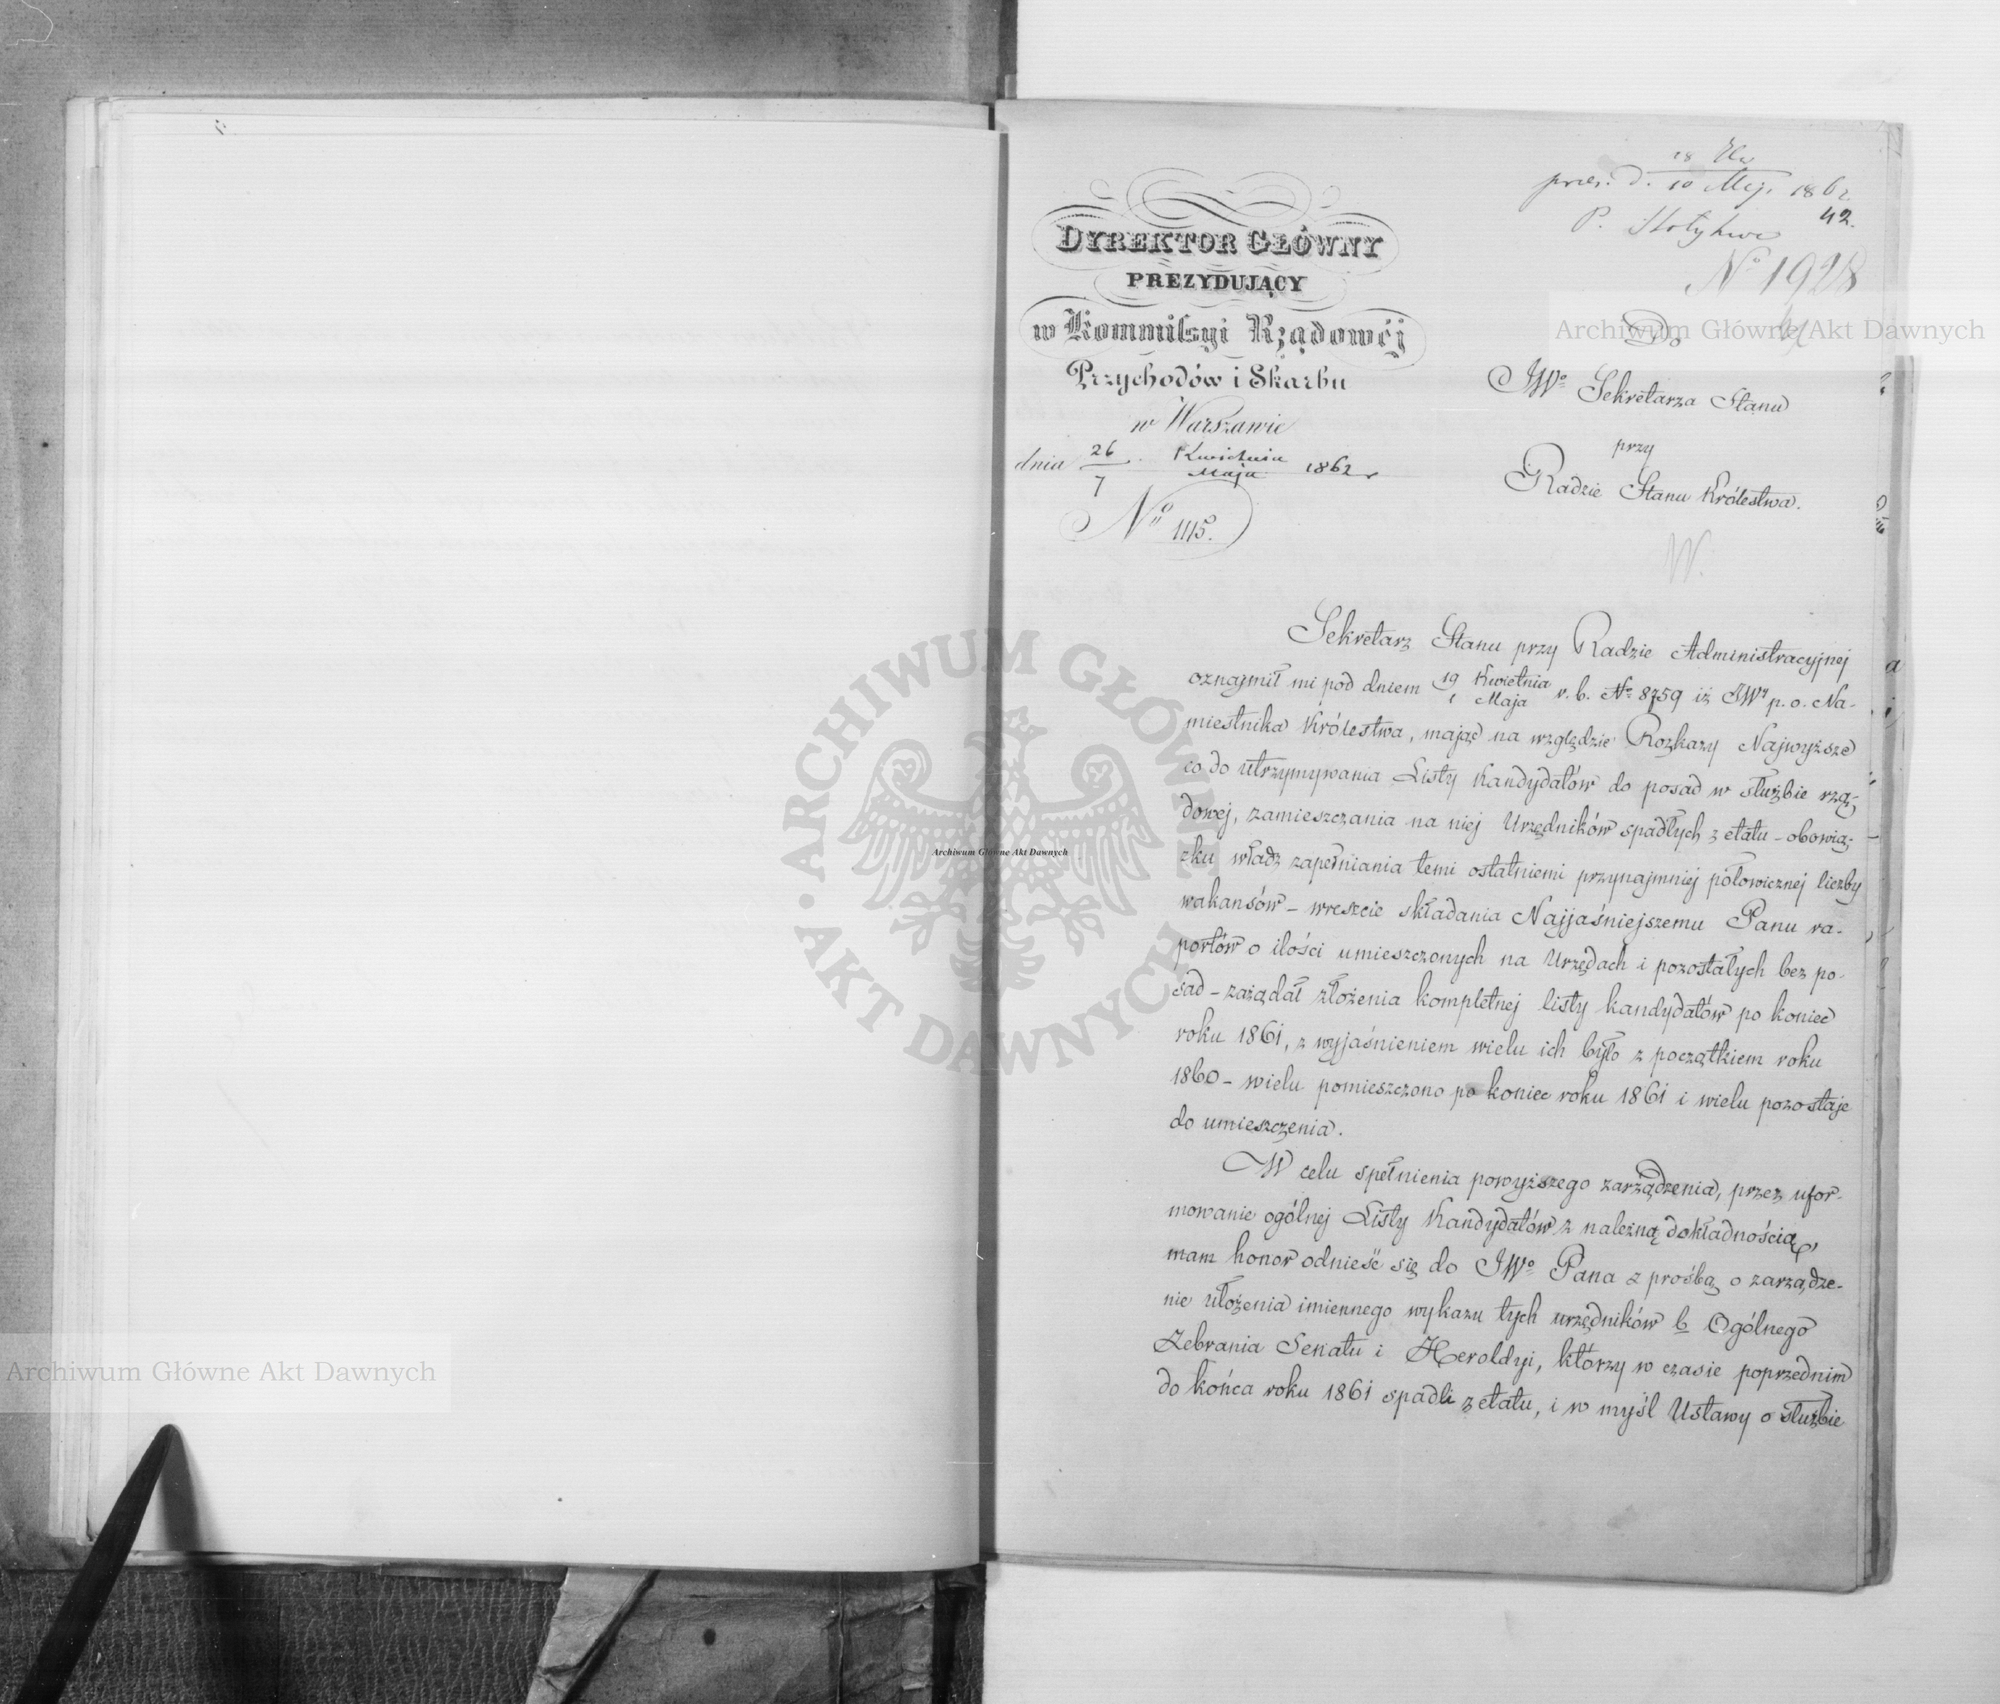 DYREKTOR GŁÓWNY
PREZYDUJĄCY
w Kommissyi Rządowéj
Przychodów i Skarbu
w Warszawie
dnia 26/7 Kwietnia/Maja 1862 r
No 1115.
prez. d. 10 Maj. 1862
42.
P.
No 1928
Do
JWo Sekretarza Stanu
przy
Radzie Stanu Królestwa.
W.
Sekretarz Stanu przy Radzie Administracyjnej
oznajmił mi pod dniem 19/1 Kwietnia/Maja r. b. No 8759 iż JWy p. o. Na-
miestnika Królestwa, mając na względzie Rozkazy Najwyższe
co do utrzymywania Listy Kandydatów do posad w służbie rzą-
dowej, zamieszczania na niej Urzędników spadłych z etatu – obowią-
zku władz zapełniania temi ostatniemi przynajmniej połowicznej liczby
wakansów – wreszcie składania Najjaśniejszemu Panu ra-
portów o ilości umieszczonych na Urzędach i pozostałych bez po-
sad – zażądał złożenia kompletnej listy kandydatów po koniec
roku 1861, z wyjaśnieniem wielu ich było z początkiem roku
1860 – wielu pomieszczono po koniec roku 1861 i wielu pozostaje
do umieszczenia.
W celu spełnienia powyższego zarządzenia, przez ufor-
mowanie ogólnej Listy Kandydatów z należną dokładnością,
mam honor odnieść się do JWo Pana z prośbą o zarządze-
nie ułożenia imiennego wykazu tych urzędników b Ogólnego
Zebrania Senatu i Heroldyi, którzy w czasie poprzednim
do końca roku 1861 spadli z etatu, i w myśl Ustawy o służbie
Archiwum Główne Akt Dawnych
ARCHIWUM GŁÓWNE
AKT DAWNYCH
Archiwum Główne Akt Dawnych
Archiwum Główne Akt Dawnych